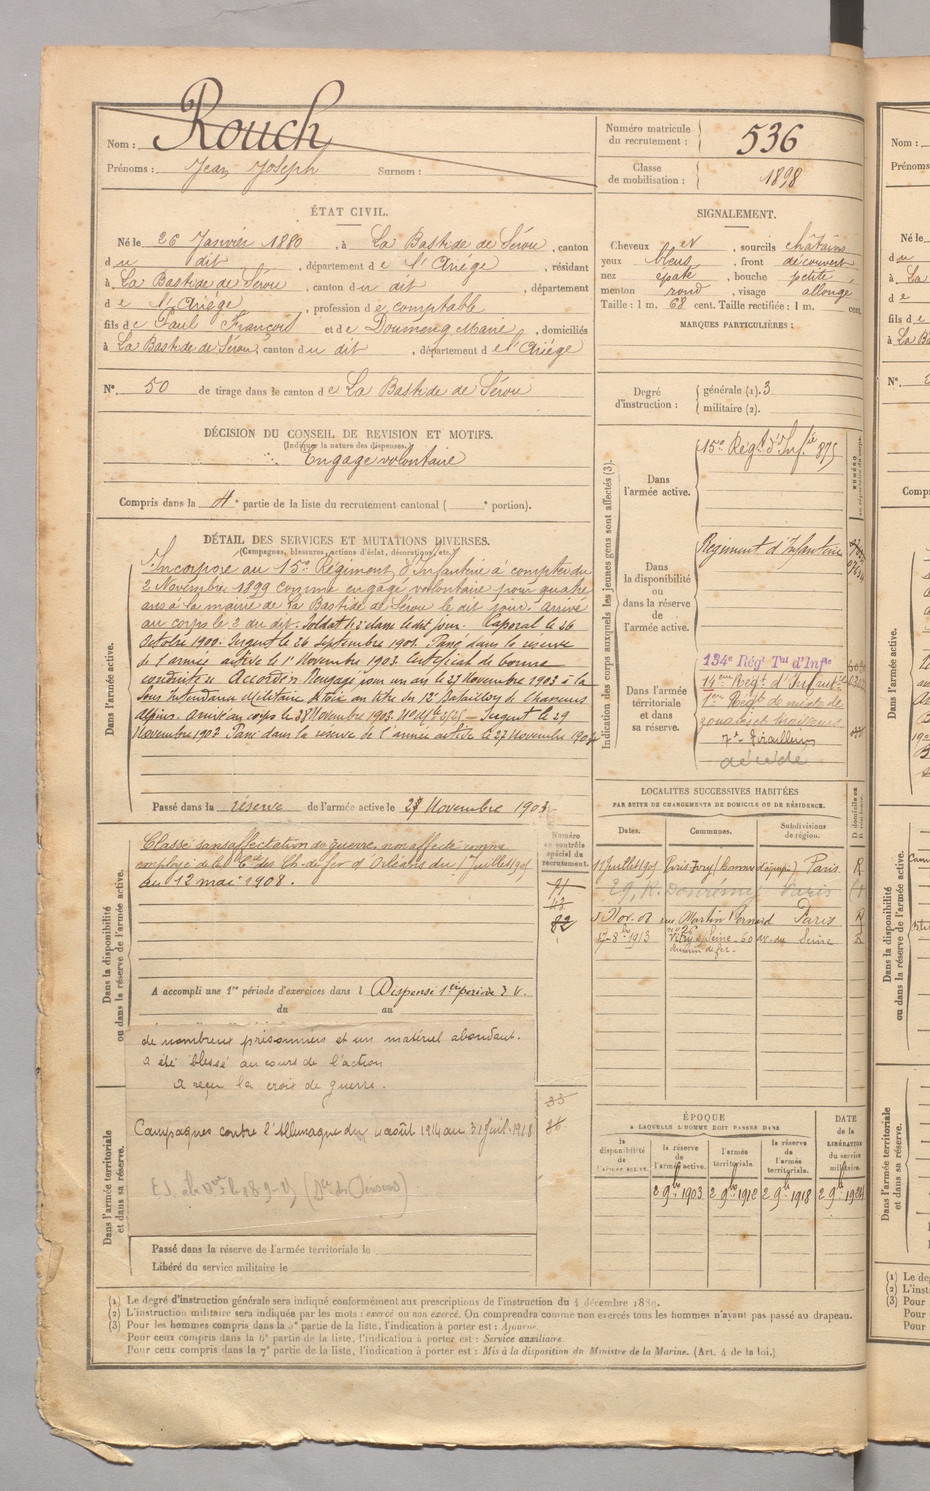 Nom : Rouch
Prénoms : Jean Joseph Surnom :
Numéro matricule du recrutement : 536
Classe de mobilisation : 1898
ÉTAT CIVIL.
Né le 26 Janvier 1880, à La Bastide de Sérou, canton
du dit, département de l'Ariége, résidant
à La Bastide de Sérou, canton du dit, département
de l'Ariége, profession de comptable
fils de Paul François et de Doumeng Marie, domiciliés
à La Bastide de Sérou, canton du dit, département de l'Ariége
N° 50 de tirage dans le canton de La Bastide de Sérou
SIGNALEMENT.
Cheveux et, sourcils châtains
yeux bleus, front découvert
nez épaté, bouche petite,
menton rond, visage allongé
Taille : 1 m. 68 cent. Taille rectifiée : 1 m. cent.
MARQUES PARTICULIÈRES :
Degré d'instruction : générale (1). 3
militaire (2).
DÉCISION DU CONSEIL DE REVISION ET MOTIFS.
(Indiquer la nature des dispenses.)
Engagé volontaire
Compris dans la 4e partie de la liste du recrutement cantonal ( e portion).
DÉTAIL DES SERVICES ET MUTATIONS DIVERSES.
(Campagnes, blessures, actions d'éclat, décorations, etc.)
Dans l'armée active.
Incorporé au 15e Régiment d'Infanterie à compter du
2 Novembre 1899 comme engagé volontaire pour quatre
ans à la mairie de La Bastide de Sérou le dit jour. Arrivé
au corps le 3 du dit. Soldat de 2e classe le dit jour. Caporal le 26
Octobre 1900. Sergent le 26 septembre 1901. Passé dans la réserve
de l'armée active le 1er Novembre 1903. Certificat de bonne
conduite Accordé. Rengagé pour un an le 27 Novembre 1903 à la
Sous Intendance Militaire au titre du 12e Bataillon de Chasseurs
alpins. Arrivé au corps le 28 Novembre 1903. Sergent le 29
Novembre 1903. Passé dans la réserve de l'armée active le 27 Novembre 1904
Passé dans la réserve de l'armée active le 27 Novembre 1903
Dans la disponibilité ou dans la réserve de l'armée active.
Numéro au contrôle spécial du recrutement.
Classé sans affectation de guerre, non affecté comme
employé de la Cie des Ch. de fer d'Orléans du 1 Juillet 1905
au 12 mai 1908.
91
43
82
A accompli une 1re période d'exercices dans l Dispensé 1ère période
du au
de nombreux prisonniers et un matériel abondant.
a été blessé au cours de l'action
a reçu la croix de guerre.
Campagnes contre l'Allemagne du 4 août 1914 au 31 Juil. 1918
33
36
Dans l'armée territoriale et dans sa réserve.
Passé dans la réserve de l'armée territoriale le
Libéré du service militaire le
Indication des corps auxquels les jeunes gens sont affectés (3).
Dans l'armée active.
15e Régt d'Infie 875
Dans la disponibilité ou dans la réserve de l'armée active.
Régiment d'Infanterie
Dans l'armée territoriale et dans sa réserve.
134e Régt Tal d'Infie
14eme Régt d'Infanterie
1er Régt de mixte de
zouaves et tirailleurs
7e Tirailleurs
décédé
LOCALITÉS SUCCESSIVES HABITÉES
PAR SUITE DE CHANGEMENTS DE DOMICILE OU DE RÉSIDENCE.
Dates. Communes. Subdivisions de région. D domicile ou R résidence.
1 Juillet 1905 Paris Ivry Paris R
29, R. Paris
5 Nov. 08 rue Martin Bernard Paris R
17-8bre 1913 Vitry s/ Seine - 60 av. du chemin de fer - Seine R
ÉPOQUE
A LAQUELLE L'HOMME DOIT PASSER DANS
DATE de la LIBÉRATION du service militaire.
la disponibilité de l'armée active. la réserve de l'armée active. l'armée territoriale. la réserve de l'armée territoriale.
2 9bre 1903 2 9bre 1912 2 9bre 1918 2 9bre 1924
(1) Le degré d'instruction générale sera indiqué conformément aux prescriptions de l'instruction du 4 décembre 1889.
(2) L'instruction militaire sera indiquée par les mots : exercé ou non exercé. On comprendra comme non exercés tous les hommes n'ayant pas passé au drapeau.
(3) Pour les hommes compris dans la 5e partie de la liste, l'indication à porter est : Ajourné.
Pour ceux compris dans la 6e partie de la liste, l'indication à porter est : Service auxiliaire.
Pour ceux compris dans la 7e partie de la liste, l'indication à porter est : Mis à la disposition du Ministre de la Marine. (Art. 4 de la loi.)